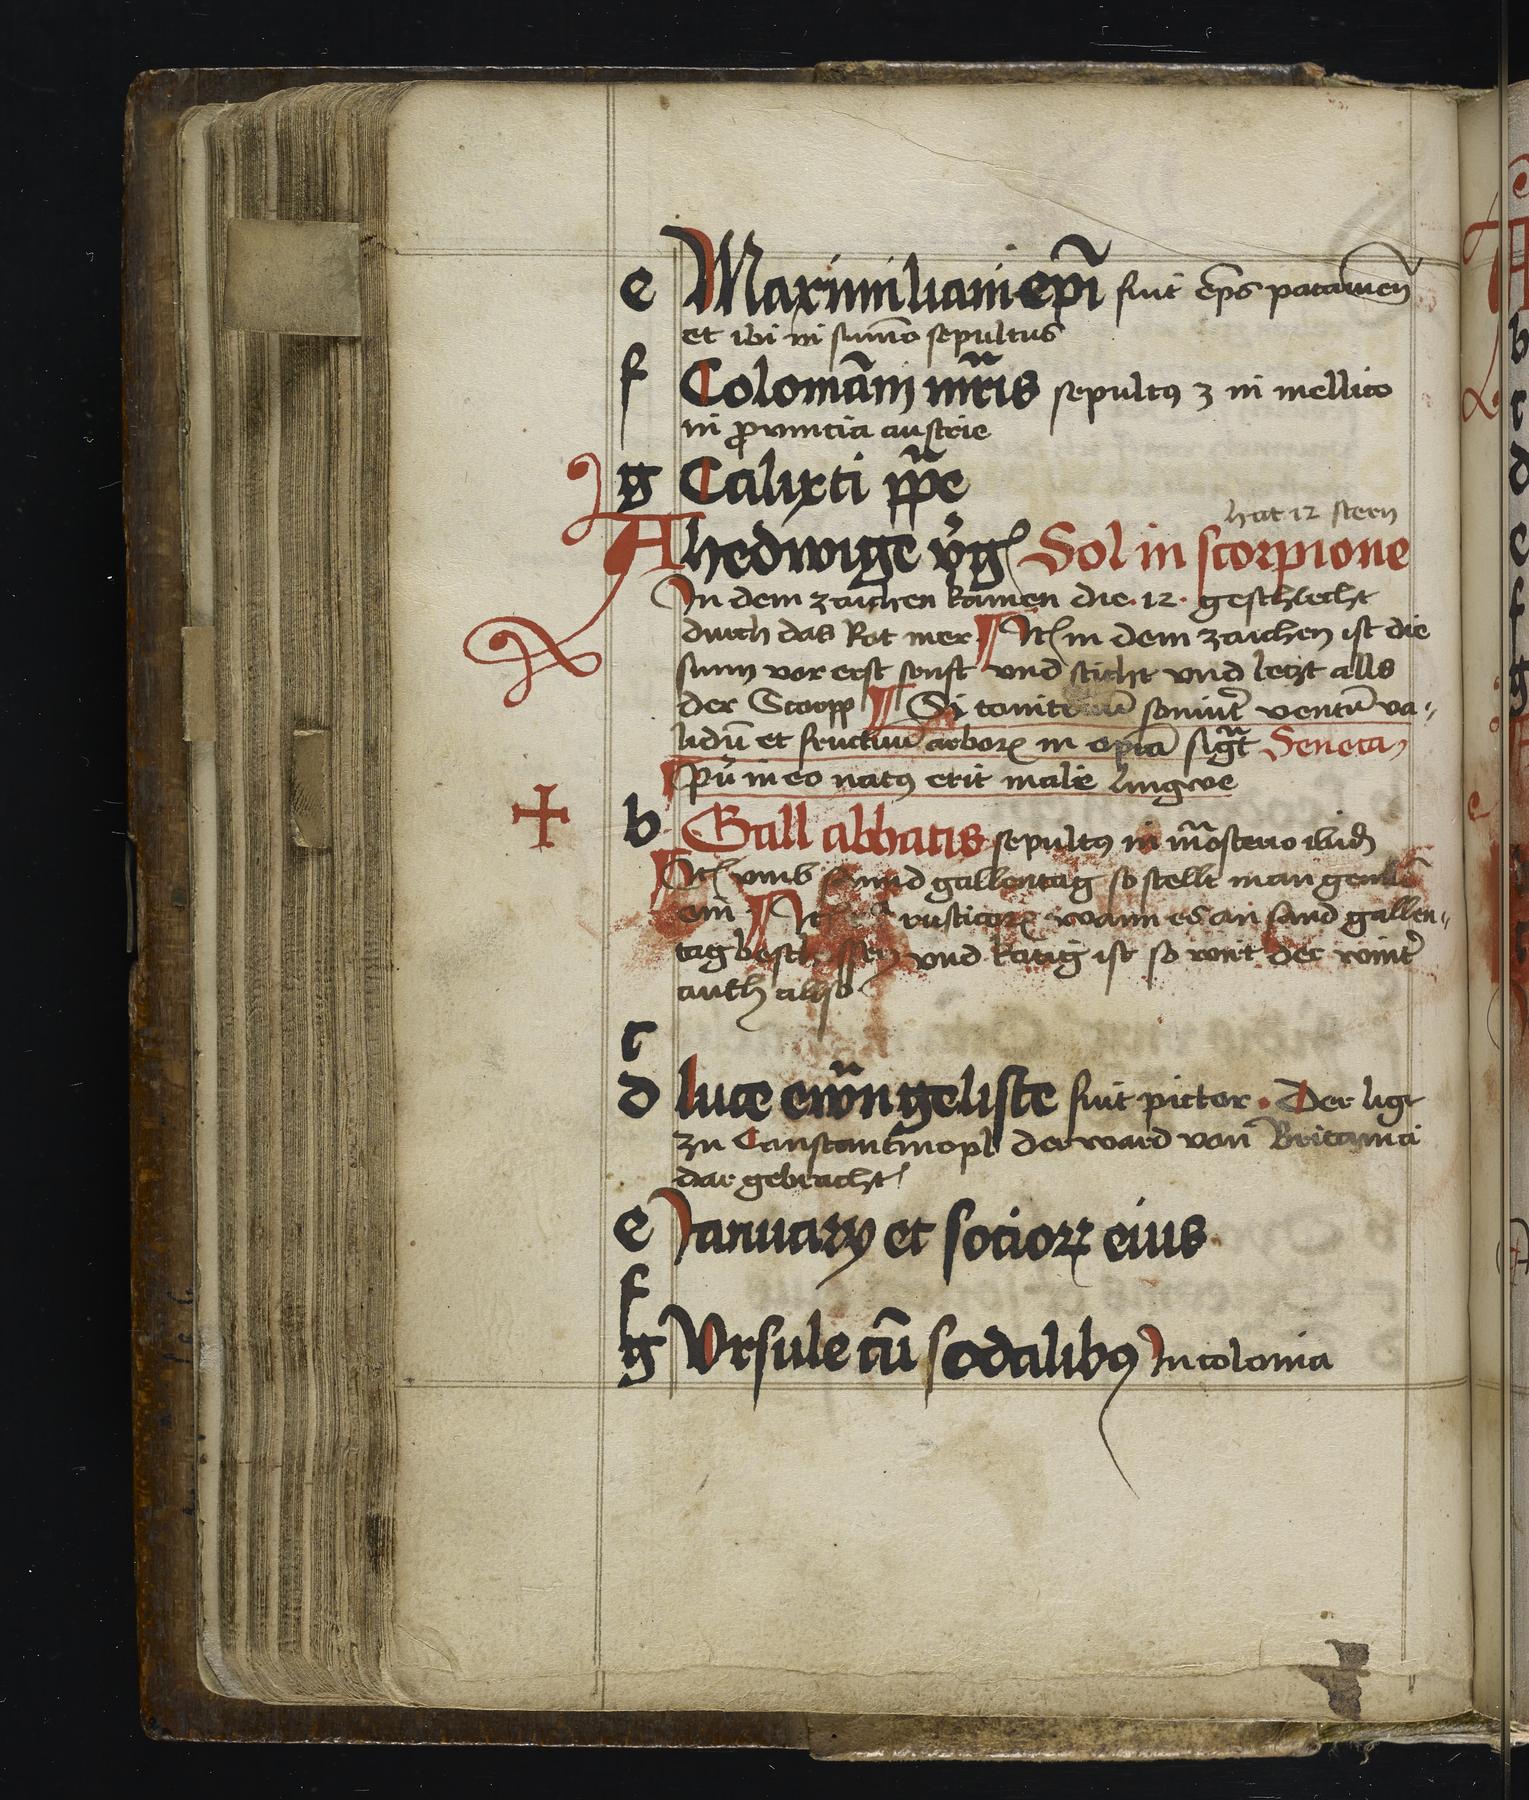 e Maximiliani epī fuit eps patauien
et ibi in sum̄o sepultus
f Colomān̄i mr̄is sepultꝯ ꝫ in mellico
in ꝓuincia austrie
g Calixti pp̄e
hat 12 stern
A hedwige v̄gꝭ Sol in scorpione
In dem zaichen kamen die · 12 · geschlecht
durch das Rot mer ¶ Itꝭ in dem zaichen ist die
sunn vor erst senft vnd sticht vnd letzt alls
der Scorpp ¶ Si tonitruū sonuit̄ ventū va〃
lidū et fructuū arborꝝ in opia sigt̄ Seneca
¶ pu᷑ in eo natꝯ erit malie lingwe
b Gall abbatis sepultꝯ in mōsterio ibid
¶ Itꝭ vmb sannd gallentag so stellt man
ein ¶ rusticorꝝ wann es an sand gallen〃
tag vnd katig ist so wirt der wint̄
auch allso
c
d luce ewāngeliste fuit pictor · Der ligt
zu Constantinopl der ward von Britannia
dar gebracht
e Januarÿ et sociorꝝ eius
f
g Vrsule cū sodalibꝯ In colonia